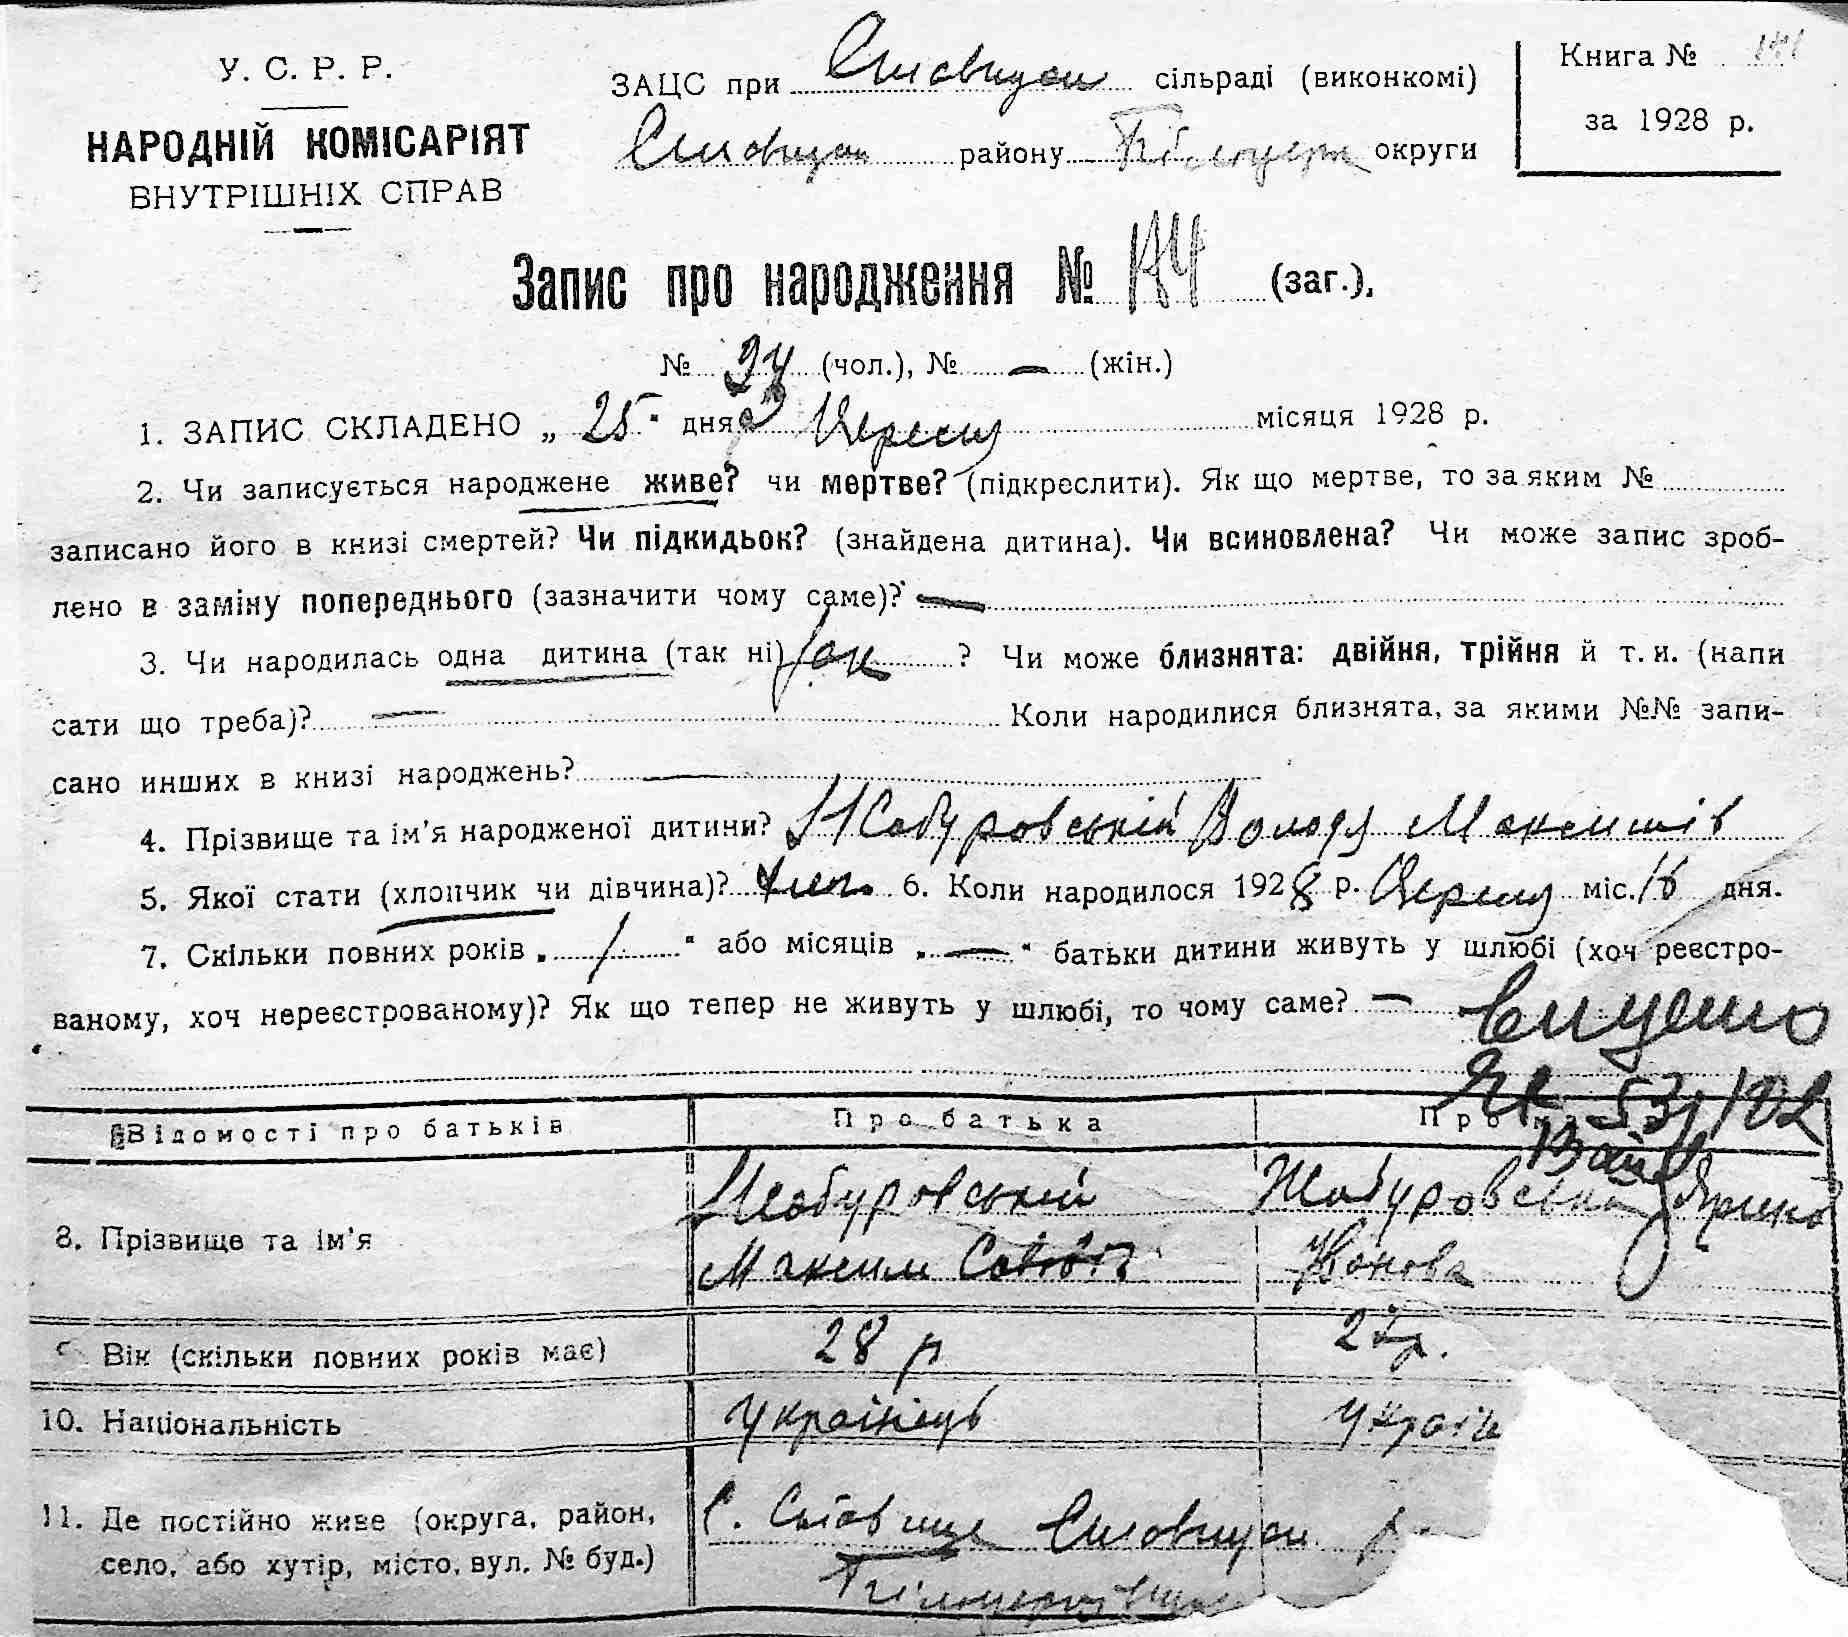 У. С. Р. Р.
НАРОДНІЙ КОМІСАРІЯТ
ВНУТРІШНІХ СПРАВ
ЗАЦС при Ставищан сільраді (виконкомі)
Ставищан району Білоцерк округи
Книга №
за 1928 р.
Запис про народження № (заг.),
№ 94 (чол.), № — (жін.)
1. ЗАПИС СКЛАДЕНО „ 25 " дня Вересня місяця 1928 р.
2. Чи записується народжене живе? чи мертве? (підкреслити). Як що мертве, то за яким №
записано його в книзі смертей? Чи підкидьок? (знайдена дитина). Чи всиновлена? Чи може запис зроб-
лено в заміну попереднього (зазначити чому саме)? —
3. Чи народилась одна дитина (так ні) так ? Чи може близнята: двійня, трійня й т. и. (напи
сати що треба)? — Коли народилися близнята, за якими №№ запи-
сано инших в книзі народжень? —
4. Прізвище та ім'я народженої дитини? Жабуровській Володя Максимів
5. Якої стати (хлопчик чи дівчина)? 6. Коли народилося 1928 р. Вересня міс. 16 дня.
7. Скільки повних років „ / " або місяців „ — " батьки дитини живуть у шлюбі (хоч реєстро-
ваному, хоч нереєстрованому)? Як що тепер не живуть у шлюбі, то чому саме? —
Відомості про батьків
Про батька
Про
8. Прізвище та ім'я
Жабуровській
Максим
Жабуровська Ярина
Іванова
Вік (скільки повних років має)
28 р
10. Національність
Українець
Украін
11. Де постійно живе (округа, район,
село, або хутір, місто, вул. № буд.)
С. Ставище Ставищан р.
Білоцерківщ